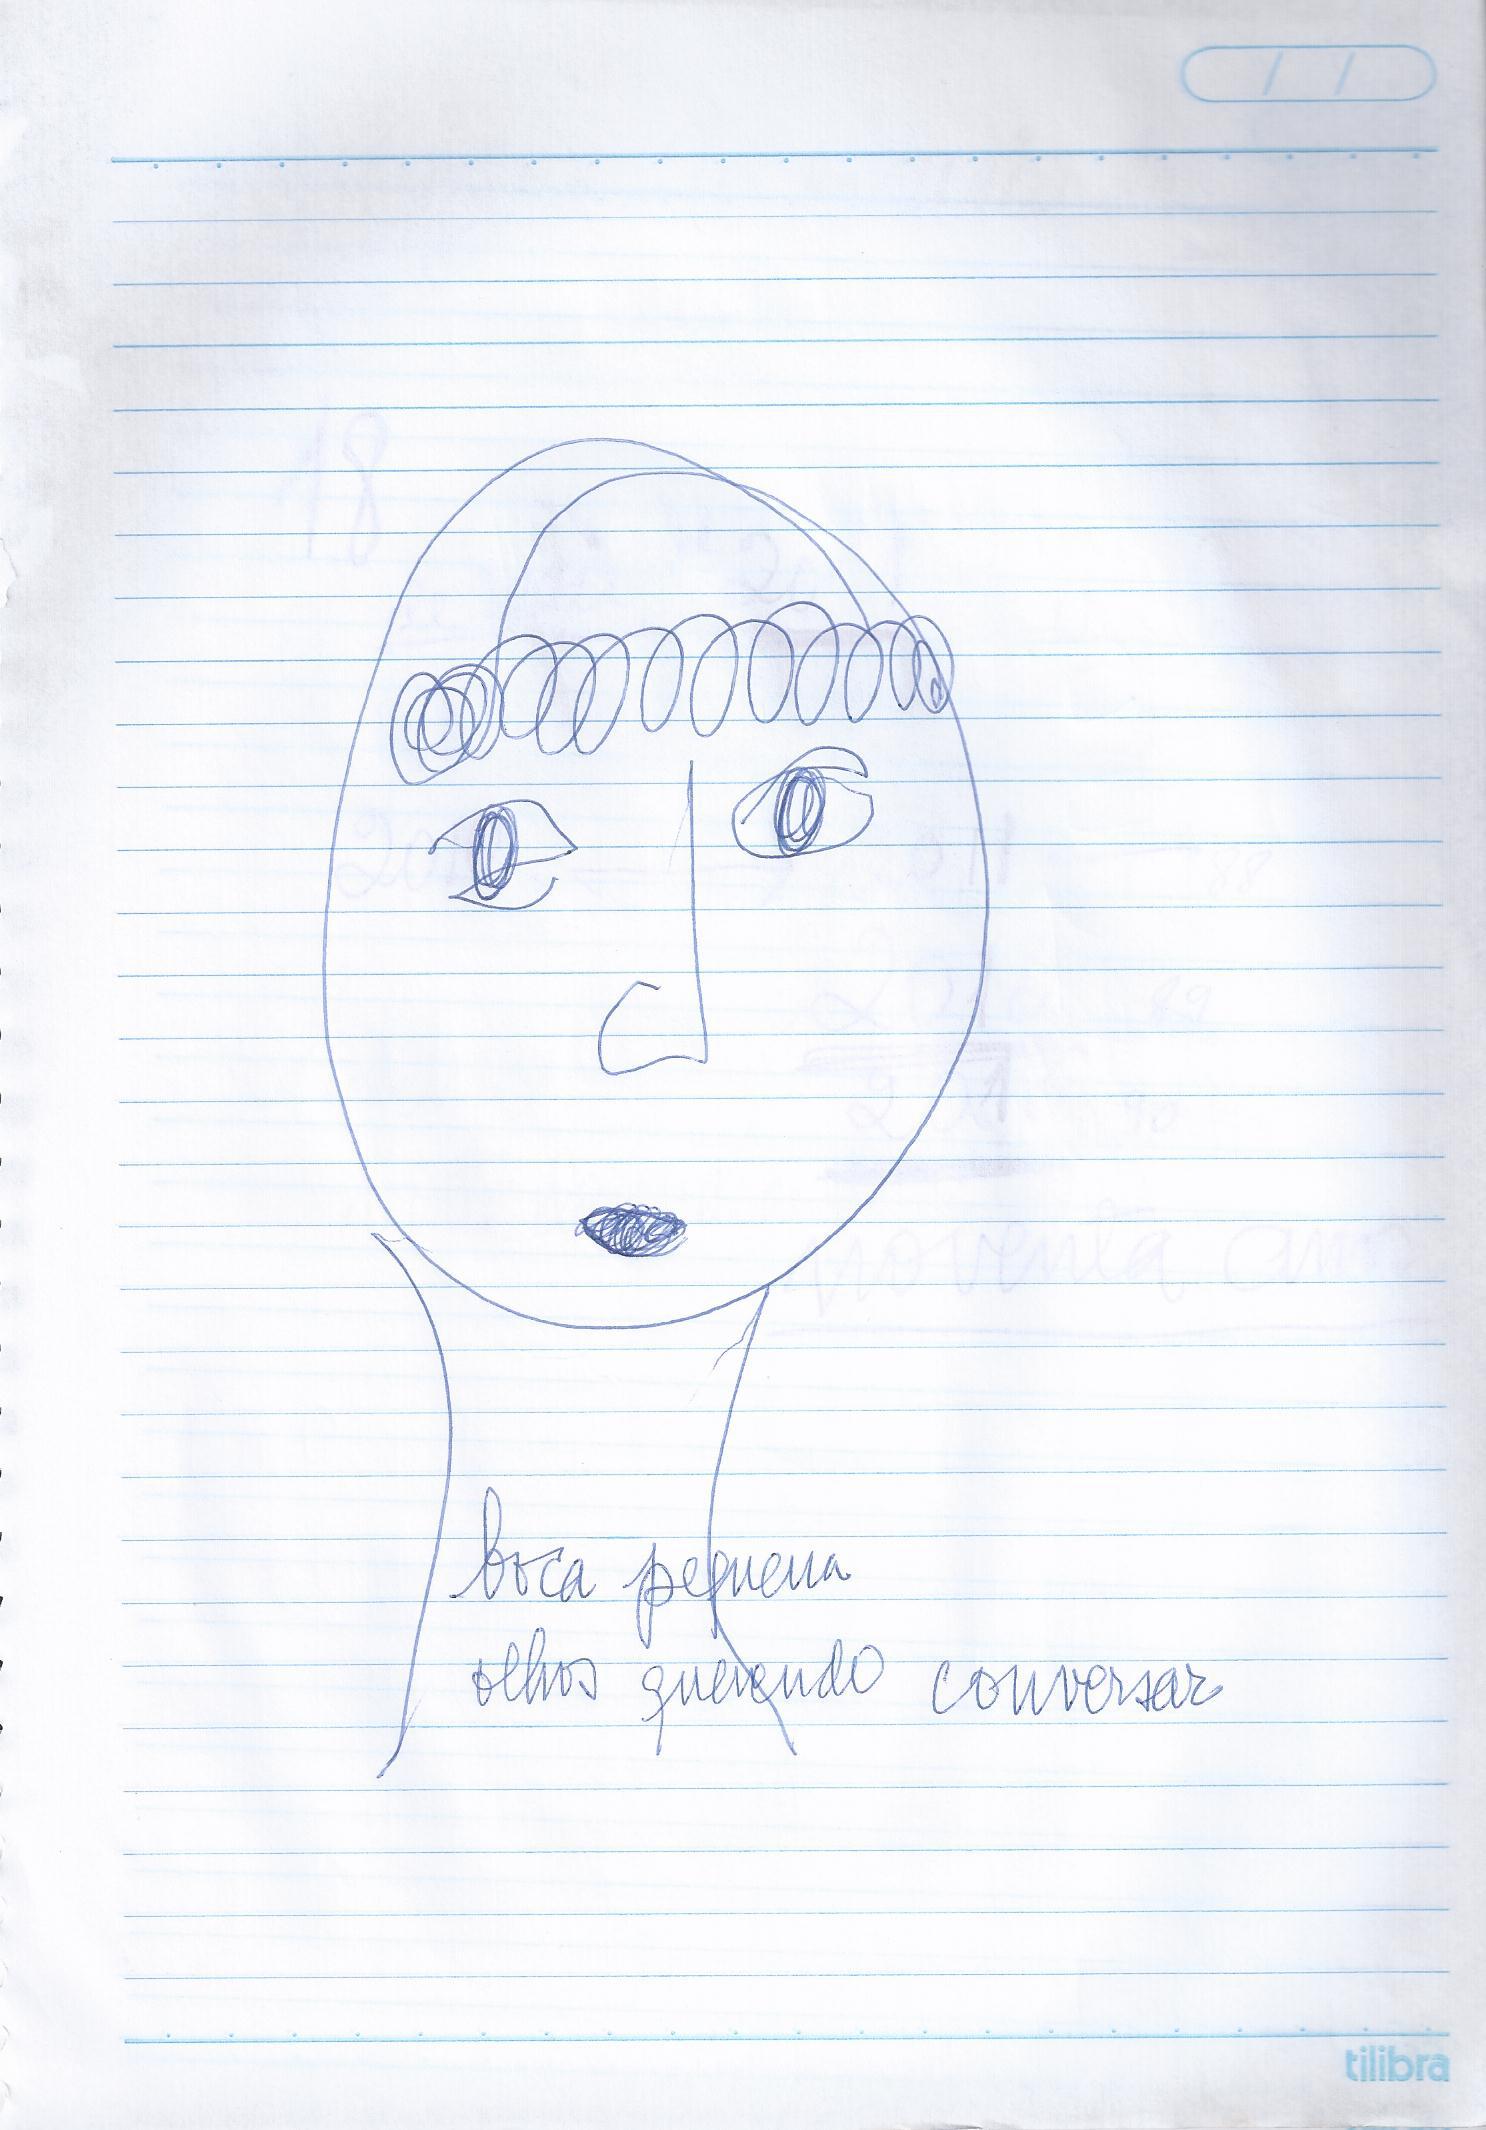 boca pequena
olhos querendo conversar
tilibra